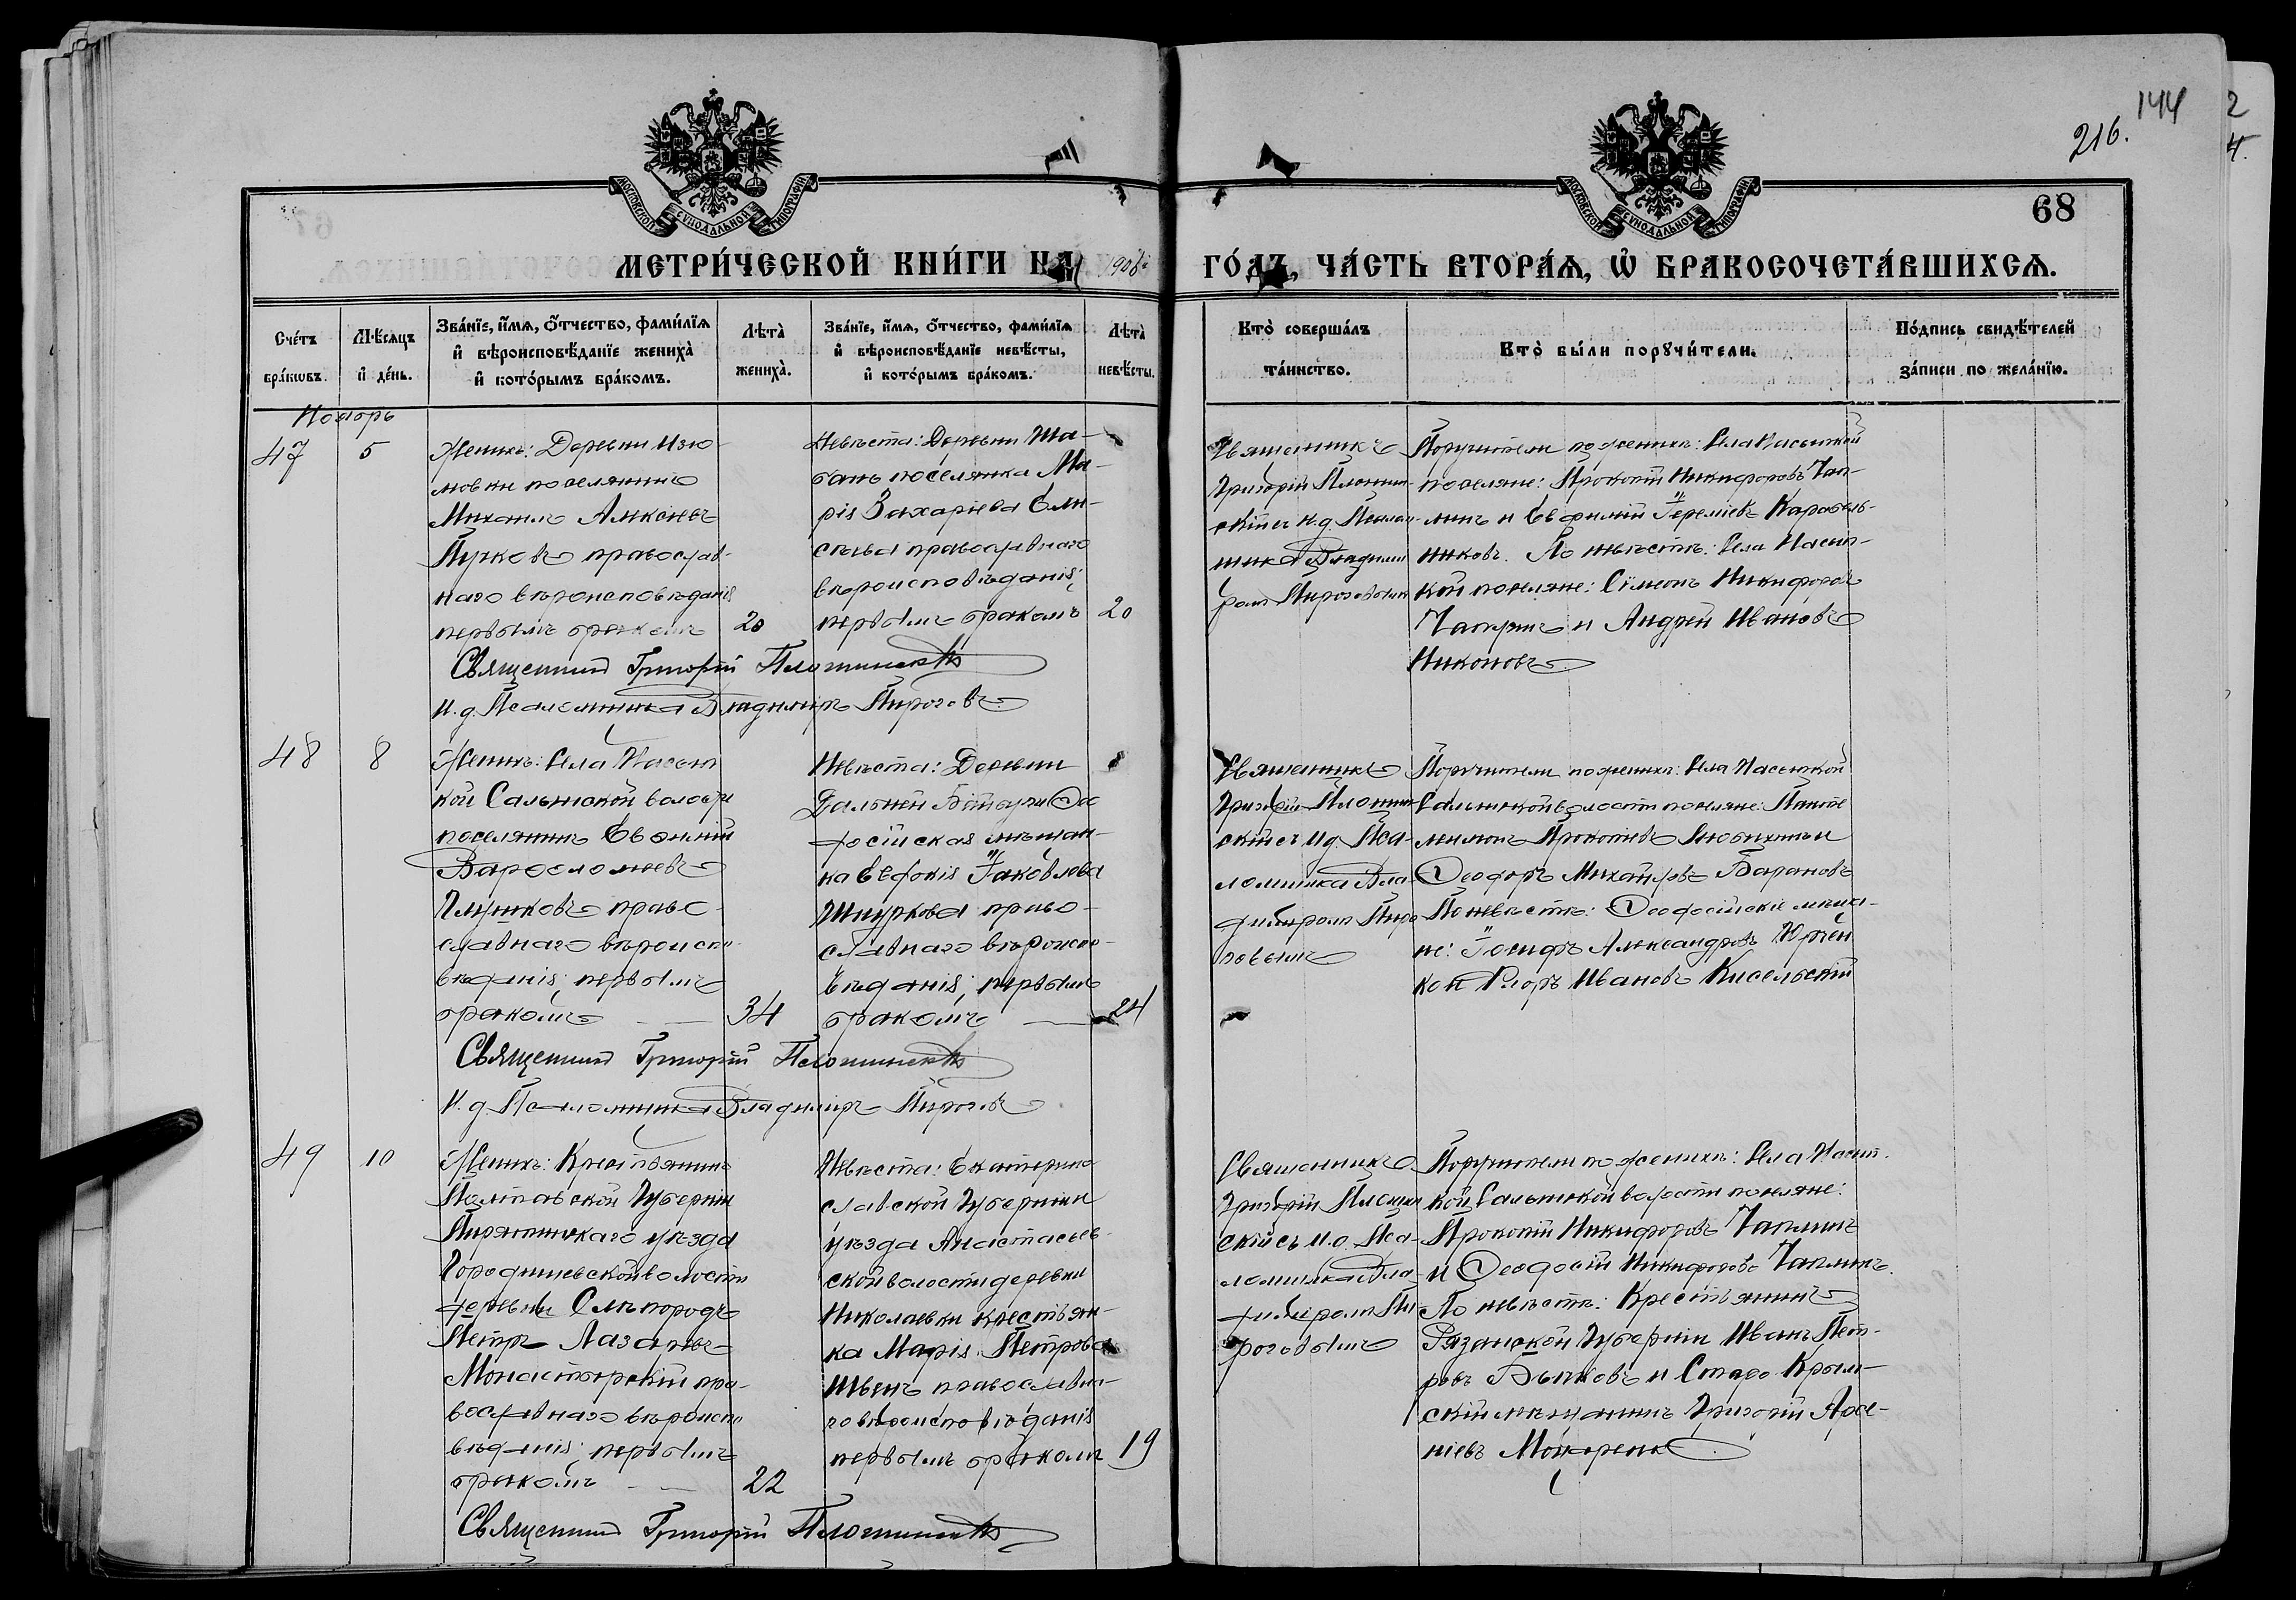 144
216.
2
4.
МОСКОВСКОЙ СѴНОДАЛЬНОЙ ТИПОГРАФІИ
МОСКОВСКОЙ СѴНОДАЛЬНОЙ ТИПОГРАФІИ
68
МЕТРИ́ЧЕСКОЙ КНИ́ГИ НА 1906
ГО́ДЪ, ЧА́СТЬ ВТОРА́Ѧ, Ѡ҆ БРАКОСОЧЕТА́ВШИХСѦ.
Сче́тъ бра́кѡвъ.
Мѣ́сяцъ и҆ де́нь.
Зва́нїе, и҆́мѧ, ѻ҆́тчество, фами́лїѧ и҆ вѣроисповѣ́данїе жениха̀ и҆ кото́рымъ бра́комъ.
Лѣта̀ жениха̀.
Зва́нїе, и҆́мѧ, ѻ҆́тчество, фами́лїѧ и҆ вѣроисповѣ́данїе невѣ́сты, и҆ кото́рымъ бра́комъ.
Лѣта̀ невѣ́сты.
Кто̀ соверша́лъ та́инство.
Кто̀ бы́ли порꙋчи́тели.
По́дпись свидѣ́телей за́писи по жела́нїю.
Ноябрь
47
5
Женихъ: Деревни Изю-
мовки поселянинъ
Михаилъ
Пучковъ православ-
наго вѣроисповѣданія
первымъ бракомъ
20
Невѣста: Деревни Ша-
бань поселянка Ма-
рія Захаріева Ели-
сѣева православнаго
вѣроисповѣданія;
первымъ бракомъ
20
Священникъ
Григорій Плотин-
скій съ и.д. Псалом-
щика Владими-
ромъ Пироговымъ
Поручители по женихѣ: Села Насыпкой
поселяне: Прокопій Никифоровъ Чап-
линъ и Евфимій Іереміевъ Карабель-
никовъ. По невѣстѣ: Села Насып-
кой поселяне: Сѵмеонъ Никифоровъ
Чаплинъ и Андрей Ивановъ
Никоновъ
Священникъ Григорій Плотинскій
И.д. Псаломщика Владиміръ Пироговъ
48
8
Женихъ: Села Насып
кой Салынской волости
поселянинъ Евѳимій
Варѳоломеевъ
Глушковъ право-
славнаго вѣроиспо-
вѣданія; первымъ
бракомъ
34
Невѣста: Деревни
Дальнѣй Байбуги Ѳео
досійская мѣщан-
ка Евдокія Іаковлева
Шнуркова право-
славнаго вѣроиспо-
вѣданія; первымъ
бракомъ
24
Священникъ
Григорій Плотин
скій съ и.д. Пса-
ломщика Вла-
диміромъ Пиро
говымъ
Поручители по женихѣ: Села Насыпкой
Салынской волости поселяне: Панте
леимонъ Прокопіевъ
Ѳеодоръ Михайловъ Барановъ
По невѣстѣ: Ѳеодосійскіе мѣща-
не: Іосифъ Александровъ Юрчен
ко и Ивановъ Кисельскій
Священникъ Григорій Плотинскій
И.д. Псаломщика Владиміръ Пироговъ
49
10
Женихъ: Крестьянинъ
Полтавской Губерніи
Пирятинскаго уѣзда
Городищевской волости
деревни Слѣпородъ
Петръ Лазаревъ
Монастырскій пра-
вославнаго вѣроиспо
вѣданія; первымъ
бракомъ
22
Невѣста: Екатерино
славской Губерніи
уѣзда Анастасьев-
ской волости деревни
Николаевки крестьян-
ка Марія Петрова
Швецъ православна-
го вѣроисповѣданія
первымъ бракомъ
19
Священникъ
Григорій Плотин
скій съ и.о. Пса-
ломщика Вла-
диміромъ Пи-
роговымъ
Поручители по женихѣ: Села Насып-
кой Салынской волости поселяне:
Прокопій Никифоровъ Чаплинъ
и Ѳеодосій Никифоровъ Чаплинъ.
По невѣстѣ: Крестьянинъ
Рязанской Губерніи Иванъ Пет-
ровъ Бычковъ и Старо-Крым-
скій мѣщанинъ Григорій Арсе-
ніевъ
Священникъ Григорій Плотинскій